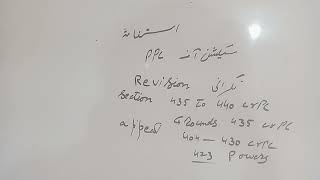 استغاثہ
سیکشن آف PPC
Revision نگرانی
section 435 to 440 crPC
Grounds 435 crPC
appeal 404 — 430 crPC
423 Powers